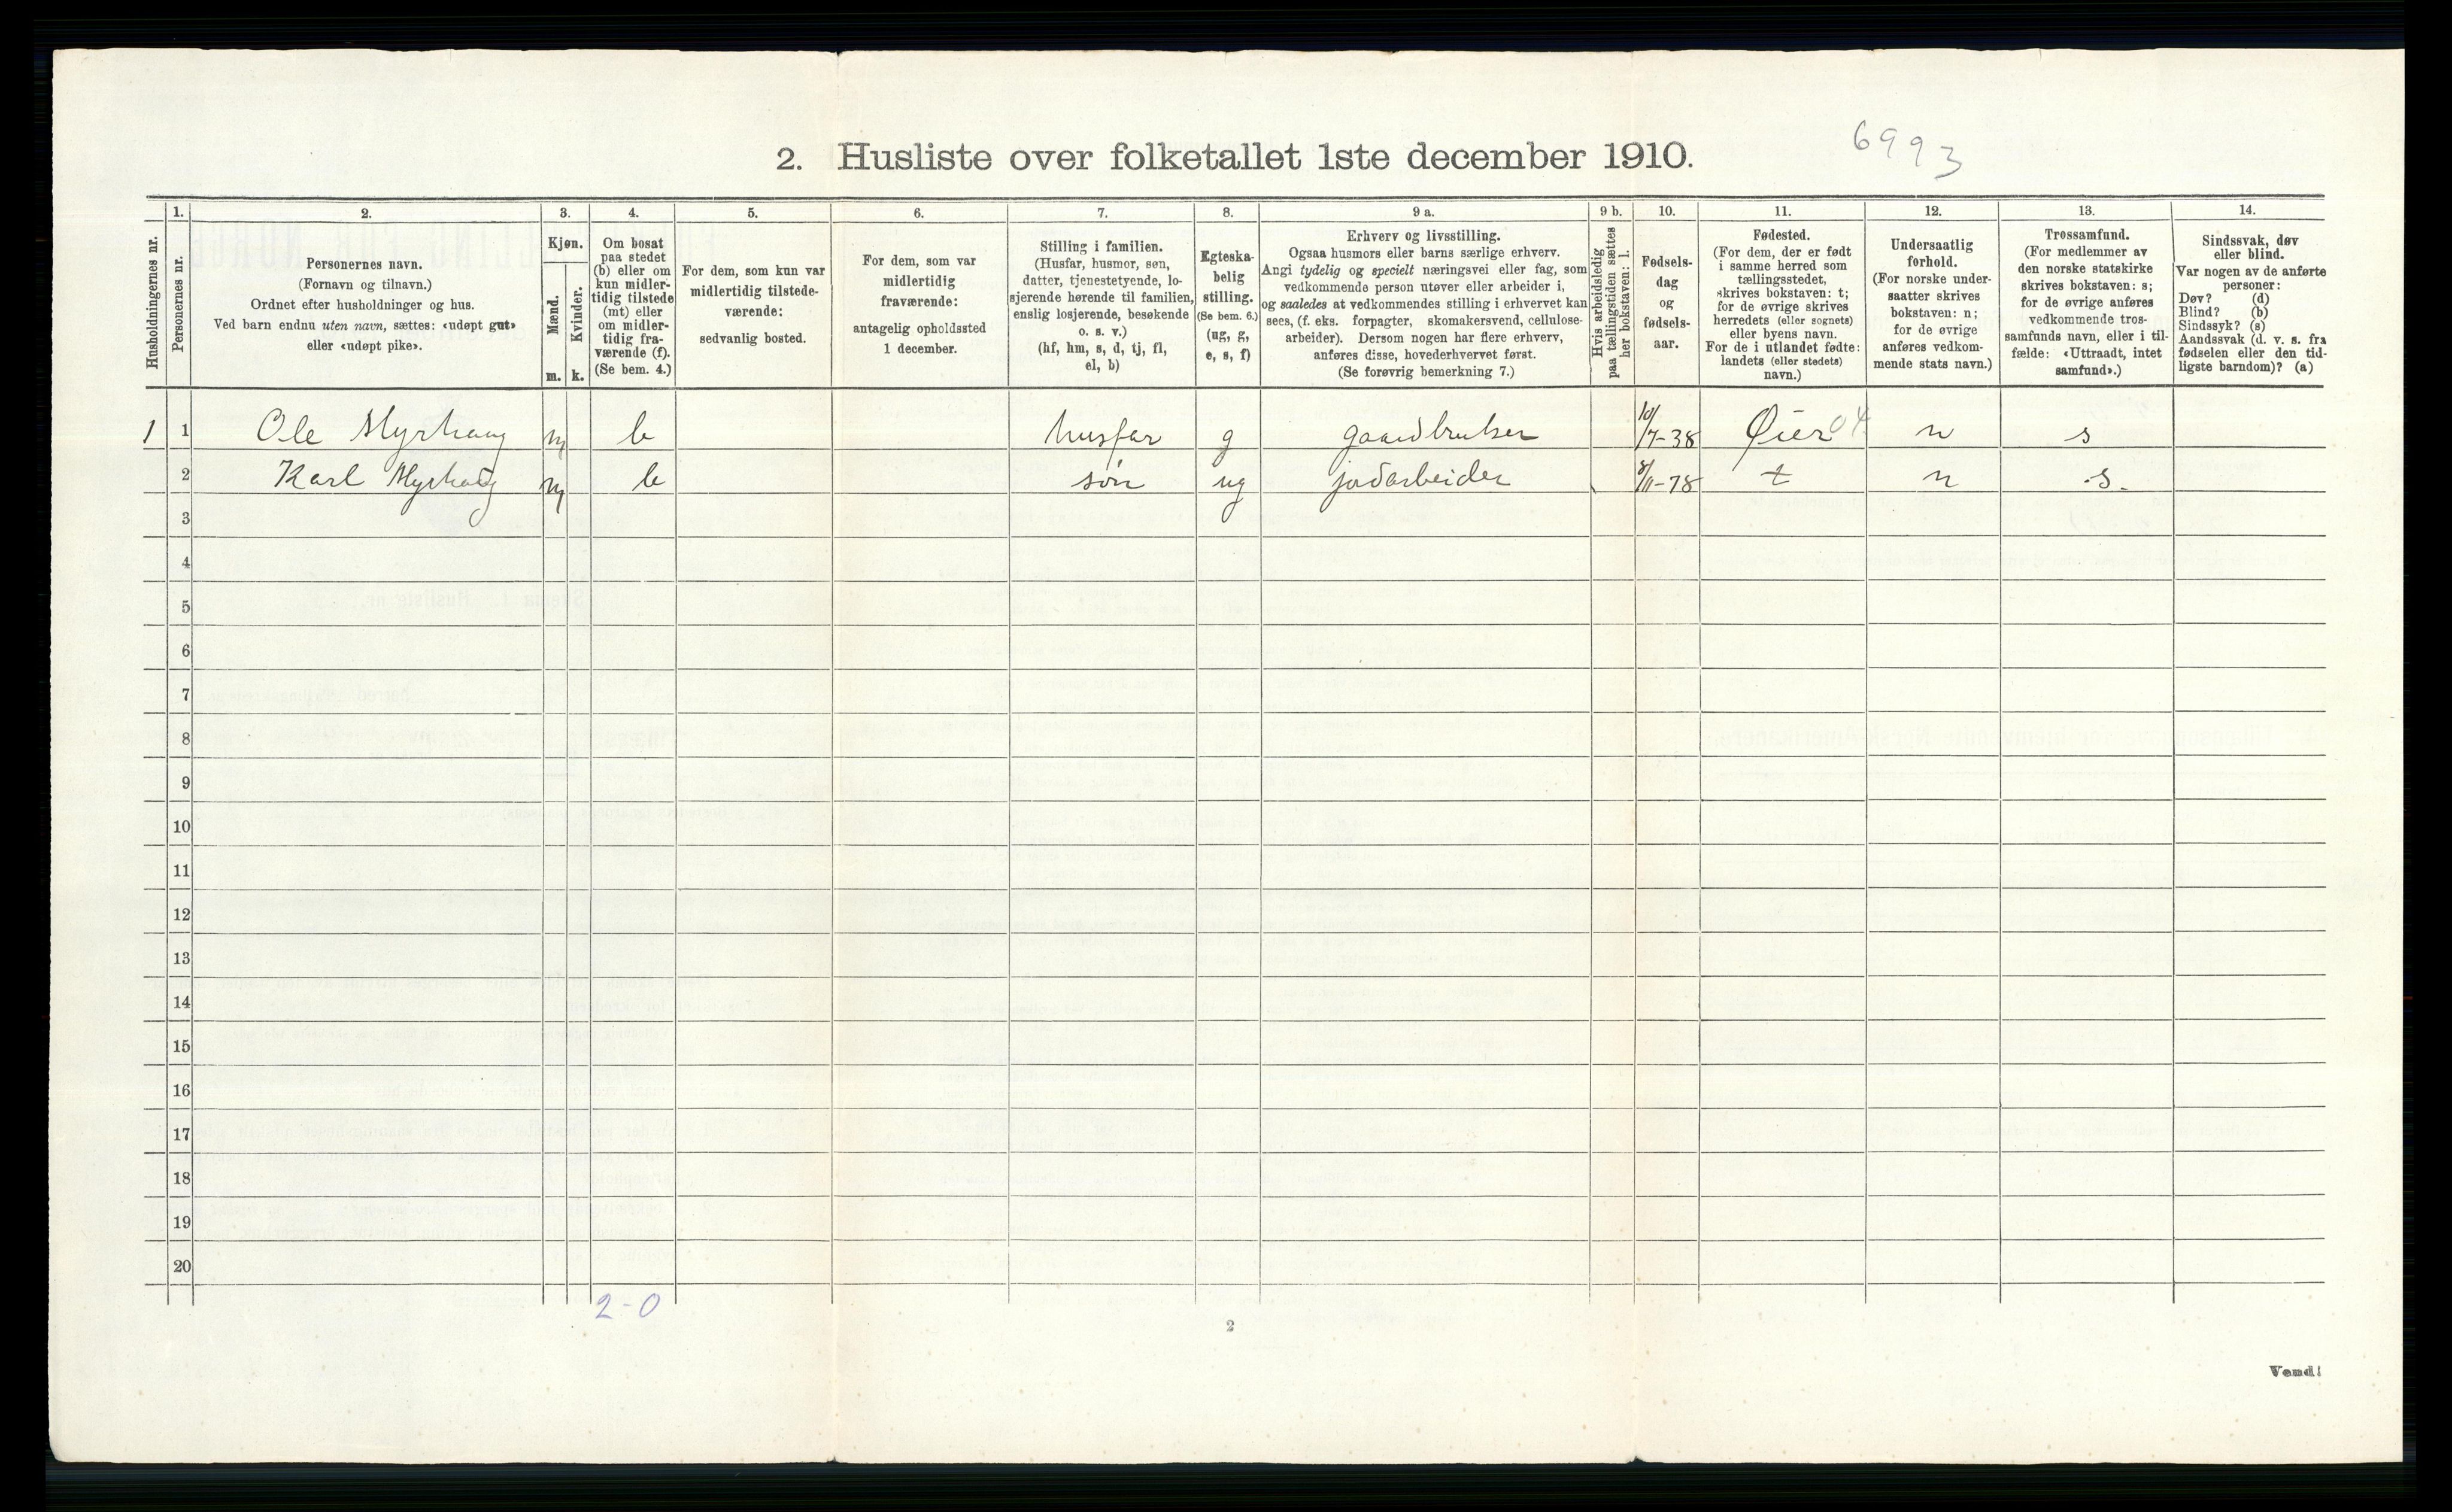 6993
2. Husliste over folketallet 1ste december 1910.
Husholdningernes nr.
1.
Personernes nr.
2.
Personernes navn.
(Fornavn og tilnavn.)
Ordnet efter husholdninger og hus.
Ved barn endnu uten navn, sættes: «udøpt gut»
eller «udøpt pike».
3.
Kjøn.
Mænd.
Kvinder.
m. k.
4.
Om bosat
paa stedet
(b) eller om
kun midler-
tidig tilstede
(mt) eller
om midler-
tidig fra-
værende (f).
(Se bem. 4.)
5.
For dem, som kun var
midlertidig tilstede-
værende:
sedvanlig bosted.
6.
For dem, som var
midlertidig
fraværende:
antagelig opholdssted
1 december.
7.
Stilling i familien.
(Husfar, husmor, søn,
datter, tjenestetyende, lo-
sjerende hørende til familien,
enslig losjerende, besøkende
o. s. v.)
(hf, hm, s, d, tj, fl,
el, b)
8.
Egteska-
belig
stilling.
(Se bem. 6.)
(ug, g,
e, s, f)
9 a.
Erhverv og livsstilling.
Ogsaa husmors eller barns særlige erhverv.
Angi tydelig og specielt næringsvei eller fag, som
vedkommende person utøver eller arbeider i,
og saaledes at vedkommendes stilling i erhvervet kan
sees, (f. eks. forpagter, skomakersvend, cellulose-
arbeider). Dersom nogen har flere erhverv,
anføres disse, hovederhvervet først.
(Se forøvrig bemerkning 7.)
9 b.
Hvis arbeidsledig
paa tællingstiden sættes
her bokstaven: l.
10.
Fødsels-
dag
og
fødsels-
aar.
11.
Fødested.
(For dem, der er født
i samme herred som
tællingsstedet,
skrives bokstaven: t;
for de øvrige skrives
herredets (eller sognets)
eller byens navn.
For de i utlandet fødte:
landets (eller stedets)
navn.)
12.
Undersaatlig
forhold.
(For norske under-
saatter skrives
bokstaven: n;
for de øvrige
anføres vedkom-
mende stats navn.)
13.
Trossamfund.
(For medlemmer av
den norske statskirke
skrives bokstaven: s;
for de øvrige anføres
vedkommende tros-
samfunds navn, eller i til-
fælde: «Uttraadt, intet
samfund».)
14.
Sindssvak, døv
eller blind.
Var nogen av de anførte
personer:
Døv? (d)
Blind? (b)
Sindssyk? (s)
Aandssvak (d. v. s. fra
fødselen eller den tid-
ligste barndom)? (a)
1 1 Ole Myrhaug m b husfar g gaardbruker 10/7-38 Øier 04 n s
2 Karl Myrhaug m b søn ug jordarbeider 8/11-78 t n s.
3
4
5
6
7
8
9
10
11
12
13
14
15
16
17
18
19
20
2-0
2
Vend!